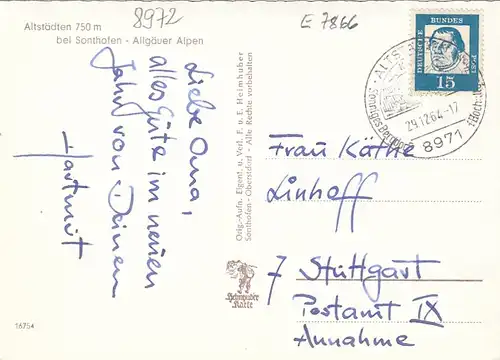 8972
E 7866
Altstädten 750 m
bei Sonthofen - Allgäuer Alpen
Liebe Oma,
alles Gute im neuen
Jahr von Deinem
Hartmut
Orig.-Aufn. Eigent. u. Verl. F. u. E. Heimhuber
Sonthofen - Oberstdorf - Alle Rechte vorbehalten
Heimhuber
Karte
16754
DEUTSCHE
BUNDES
POST
15
29.12.64-17
8971
Frau Käthe
Linhoff
7 Stuttgart
Postamt IX
Annahme